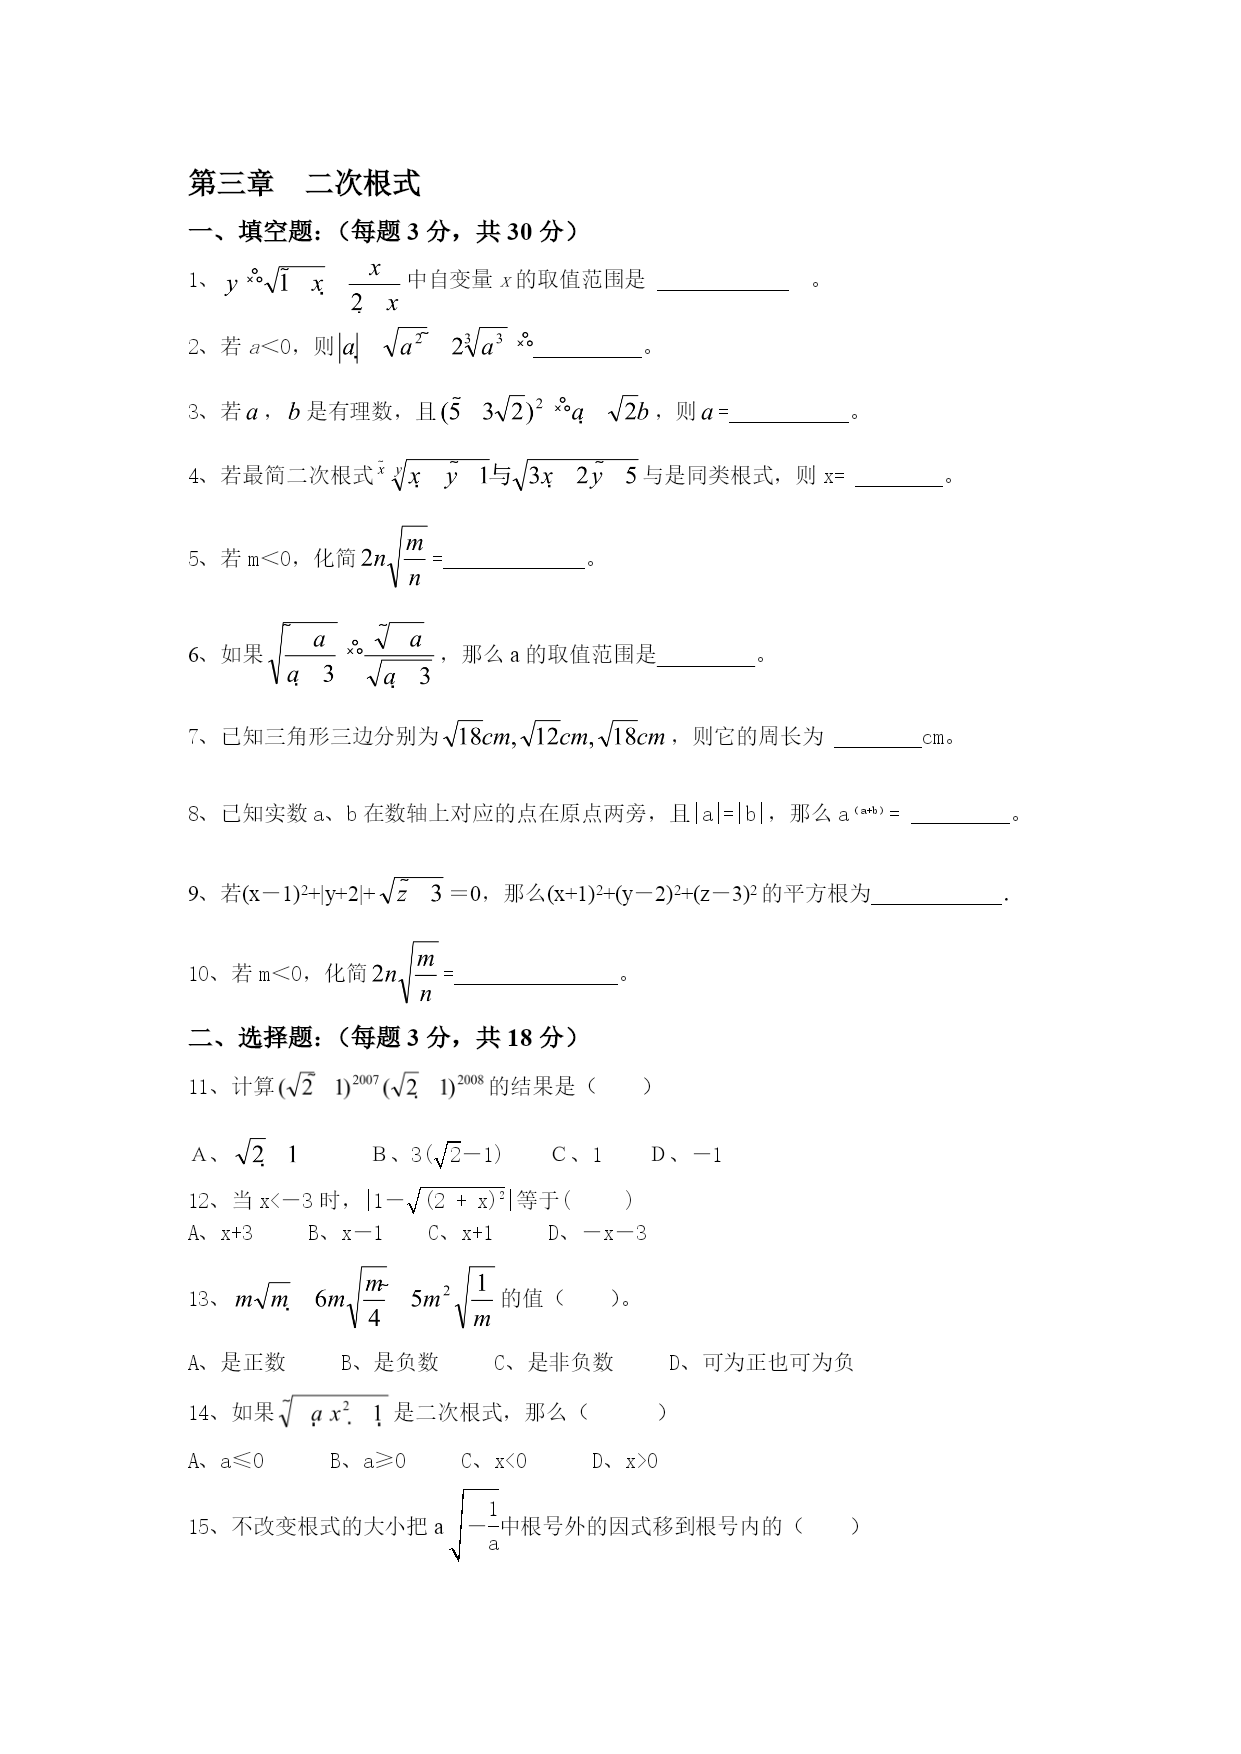 第三章 二次根式
一、填空题：（每题 3 分，共 30 分）
1、y √1 x x/2 x 中自变量 x 的取值范围是 ____________ 。
2、若 a＜0，则|a| √a² 2∛a³ __________。
3、若 a，b 是有理数，且(5 3√2)² a √2b，则 a=___________。
4、若最简二次根式 ˣ ʸ√x y 1与√3x 2y 5 与是同类根式，则 x= ________。
5、若 m＜0，化简 2n√(m/n) =_____________。
6、如果 √(a/a 3) √a/√a 3，那么 a 的取值范围是_________。
7、已知三角形三边分别为 √18cm,√12cm,√18cm，则它的周长为 ________cm。
8、已知实数 a、b 在数轴上对应的点在原点两旁，且|a|=|b|，那么 a⁽ᵃ⁺ᵇ⁾= _________。
9、若(x－1)²+|y+2|+√z 3＝0，那么(x+1)²+(y－2)²+(z－3)² 的平方根为____________．
10、若 m＜0，化简 2n√(m/n) =_______________。
二、选择题：（每题 3 分，共 18 分）
11、计算(√2 1)²⁰⁰⁷(√2 1)²⁰⁰⁸ 的结果是（ ）
A、√2 1 B、3(√2－1) C、1 D、－1
12、当 x<－3 时，|1－√(2 + x)²|等于( )
A、x+3 B、x－1 C、x+1 D、－x－3
13、m√m 6m√(m/4) 5m²√(1/m) 的值（ ）。
A、是正数 B、是负数 C、是非负数 D、可为正也可为负
14、如果 √a x² 1 是二次根式，那么（ ）
A、a≤0 B、a≥0 C、x<0 D、x>0
15、不改变根式的大小把 a √(－1/a)中根号外的因式移到根号内的（ ）